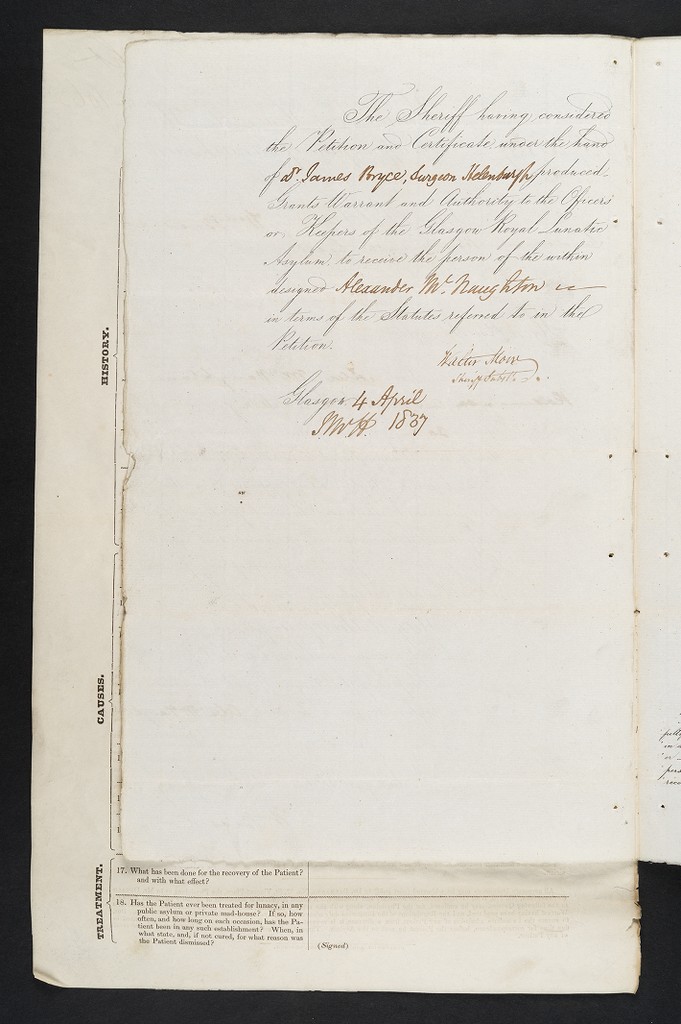 The Sheriff having considered
the Petition and Certificate under the hand
of Dr. James Bryce, Surgeon Helenburgh, produced,
Grants Warrant and Authority to the Officers
or Keepers of the Glasgow Royal Lunatic
Asylum to receive the person of the within
designed Alexander Mc. Naughton
in terms of the Statutes referred to in the
Petition.
Walter Moir
Sheriff Subst.
Glasgow 4 April
1837
HISTORY.
CAUSES.
TREATMENT.
17. What has been done for the recovery of the Patient?
and with what effect?
18. Has the Patient ever been treated for lunacy, in any
public asylum or private mad-house? If so, how
often, and how long on each occasion, has the Pa-
tient been in any such establishment? When, in
what state, and, if not cured, for what reason was
the Patient dismissed?
(Signed)